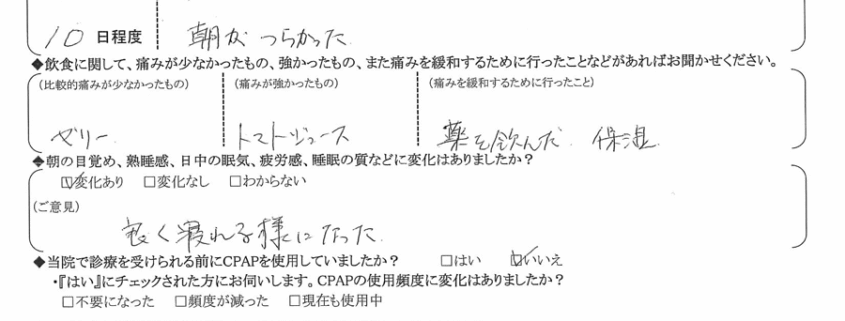 10 日程度 朝がつらかった
◆飲食に関して、痛みが少なかったもの、強かったもの、また痛みを緩和するために行ったことなどがあればお聞かせください。
(比較的痛みが少なかったもの) (痛みが強かったもの) (痛みを緩和するために行ったこと)
ゼリー トマトジュース 薬を飲んだ 保湿
◆朝の目覚め、熟睡感、日中の眠気、疲労感、睡眠の質などに変化はありましたか？
☑変化あり □変化なし □わからない
(ご意見)
良く寝れる様になった
◆当院で診療を受けられる前にCPAPを使用していましたか？ □はい ☑いいえ
・『はい』にチェックされた方にお伺いします。CPAPの使用頻度に変化はありましたか？
□不要になった □頻度が減った □現在も使用中